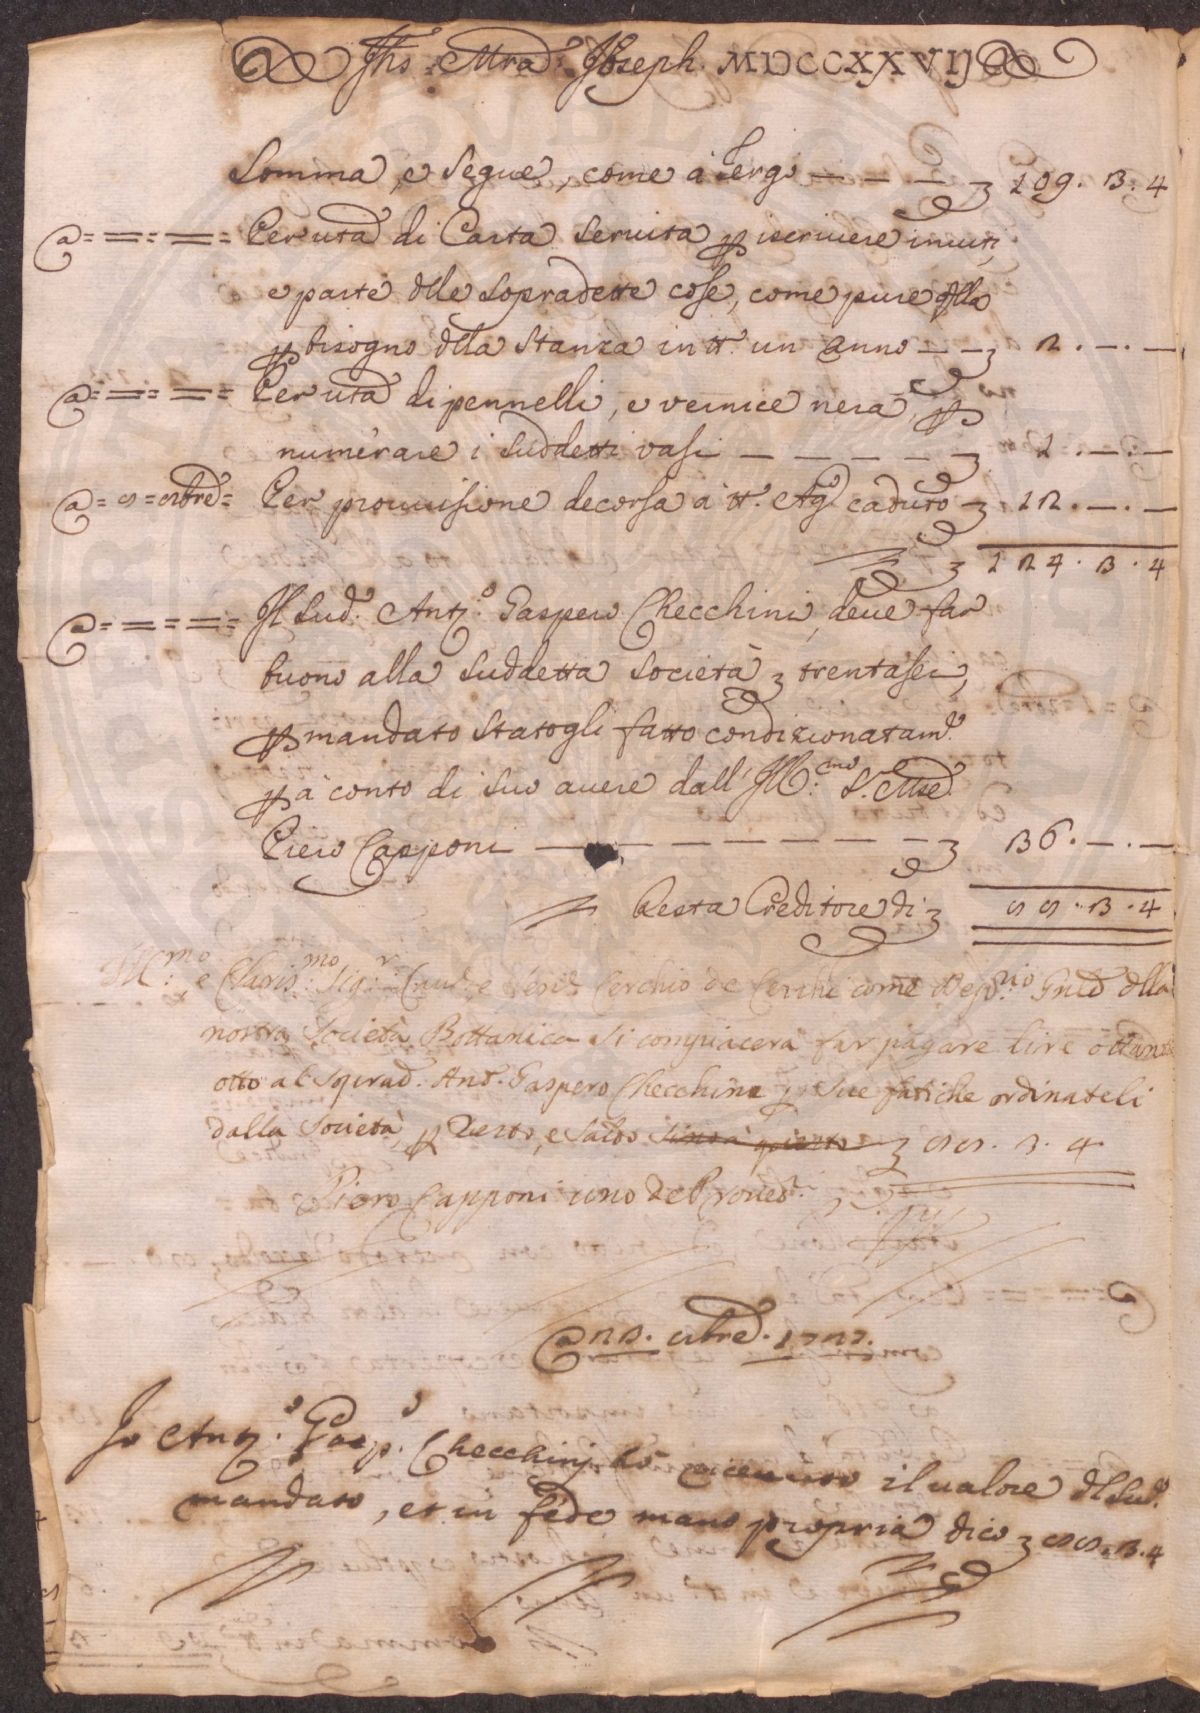 Jhs : Mra : Joseph. MDCCXXVIJ
Somma, e Segue, come à tergo — — — 109. 3. 4
a = == = == = Per uta di Carta Seruita p iscriuere inuiti,
e parte dlle Sopradette cose, come pure qlla
p bisogno dlla Stanza in tt. un anno — — 2. —. —
a = == = == = Per uta di pennelli, e uernice nera, p
numerare i Suddetti uasi — — — — — 1. —. —
a = 8 = 8bre = Per prouuisione decorsa à tt. Ago. caduto — 12. —. —
124. 3. 4
a = == = == = Il Sud.o Ant.o Gaspero Checchini, deue far
buono alla Suddetta Società trentasei,
p mandato Statogli fatto condizionatam.e
p à conto di Suo auere dall' Ill:mo S.r Mse.
Piero Capponi — — — — — — — 36. —. —
Resta Creditore di 88. 3. 4
Ill:mo e Claris:mo Sig:r Cau.e Cerchio de Cerchi come Depos.rio Gnle dlla
nostra Società Bottanica Si compiacerà far pagare lire ottant
otto al Soprad. Ant. Gaspero Checchini p Sue fatiche ordinateli
dalla Società, p resto, e Saldo 88. 3. 4
Piero Capponi uno de Proued.i
a 23. 8bre. 1727.
Io Ant.o Gasp.o Checchinj hò riceuuto il ualore dl Sud.o
mandato, et in fede mano propria dico 88. 3. 4